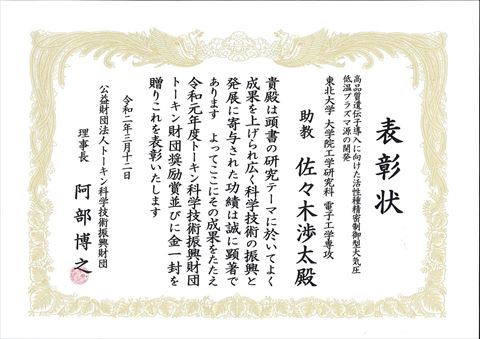 表彰状
高品質遺伝子導入に向けた活性種精密制御型大気圧
低温プラズマ源の開発
東北大学 大学院工学研究科 電子工学専攻
助教 佐々木渉太殿
貴殿は頭書の研究テーマに於いてよく
成果を上げられ広く科学技術の振興と
発展に寄与された功績は誠に顕著で
あります よってここにその成果をたたえ
令和元年度トーキン科学技術振興財団
トーキン財団奨励賞並びに金一封を
贈りこれを表彰いたします
令和二年三月十二日
公益財団法人トーキン科学技術振興財団
理事長 阿部博之